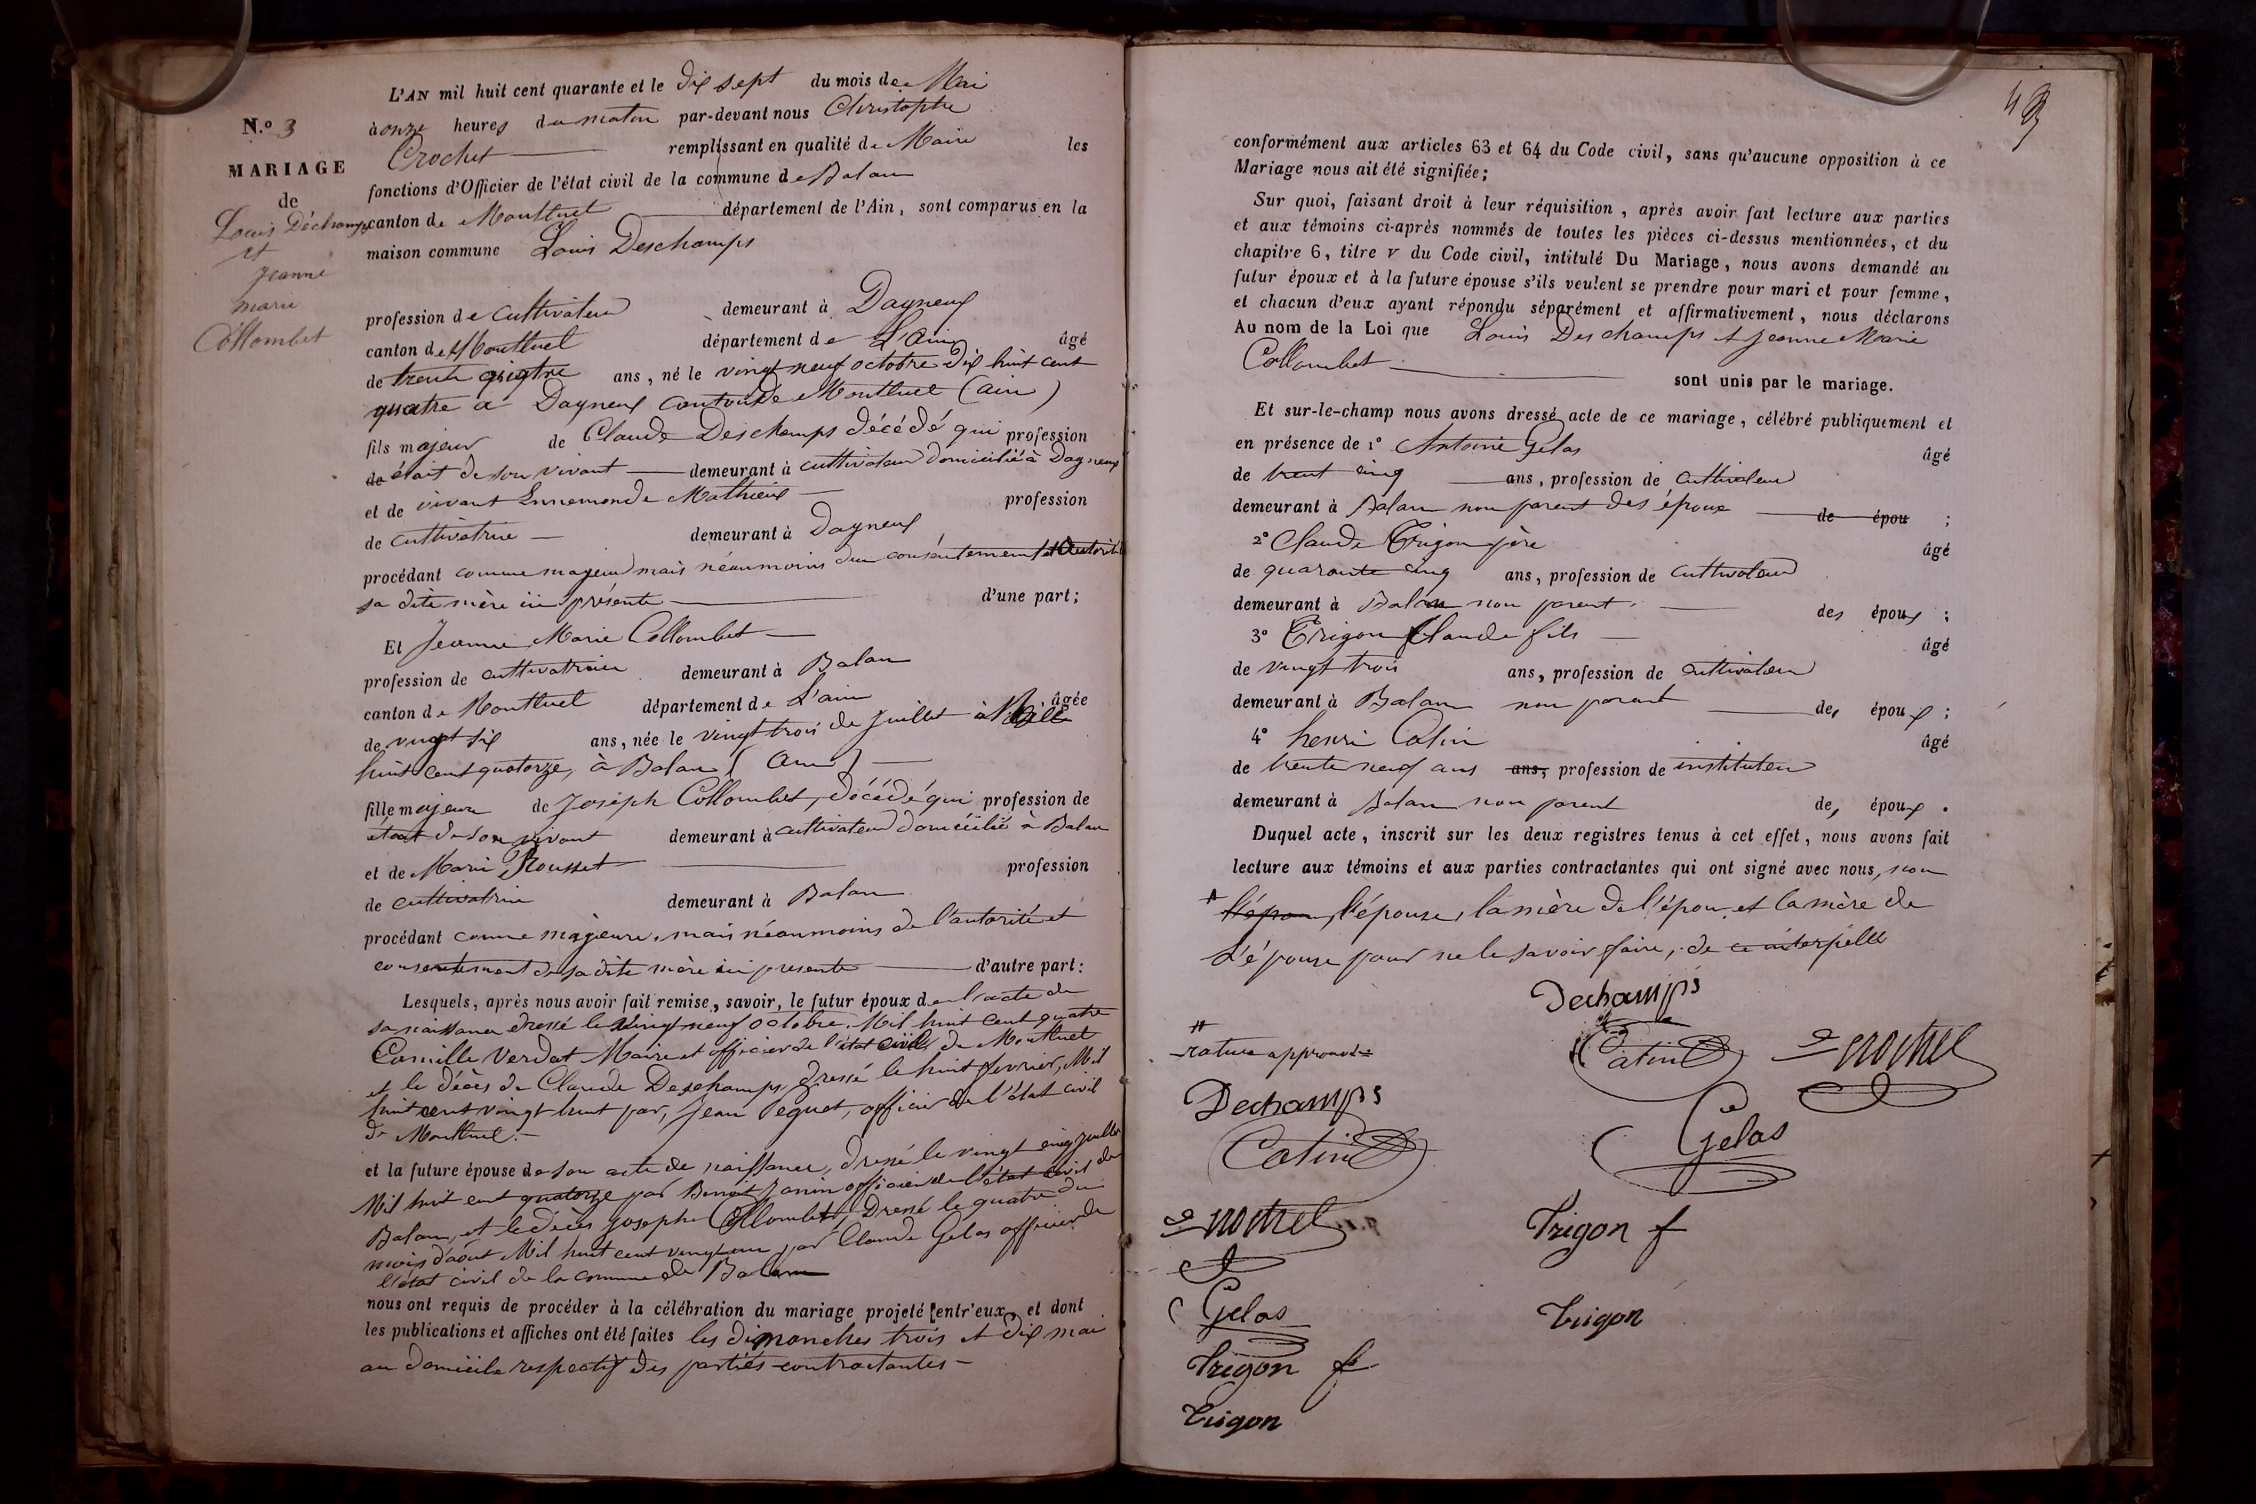 N.º 3
MARIAGE
de
Louis Déchamps
et
jeanne
marie
Collombet
L'AN mil huit cent quarante et le dix sept du mois de Mai
à onze heures du matin par-devant nous Christophe
Crochet remplissant en qualité de Maire les
fonctions d'Officier de l'état civil de la commune de Balan
canton de Montluel département de l'Ain, sont comparus en la
maison commune Louis Deschamps
profession de cultivateur demeurant à Dagneux
canton de Montluel département de L'ain âgé
de trente quatre ans, né le vingt neuf octobre dix huit cent
quatre à Dagneux canton de Montluel (ain)
fils majeur de Claude Deschamps décédé qui profession
de était de son vivant demeurant à cultivateur domicilié à Dagneux
et de vivant Ennemonde Mathieux profession
de cultivatrice demeurant à Dagneux
procédant comme majeur mais néanmoins du consentement et autorité
sa dite mère ici présente d'une part;
Et Jeanne Marie Collombet
profession de cultivatrice demeurant à Balan
canton de Montluel département de L'ain âgée
de vingt six ans, née le vingt trois de Juillet Mille
huit cent quatorze, à Balan (ain)
fille majeure de Joseph Collombet, décédé qui profession de
était de son vivant demeurant à cultivateur domicilié à Balan
et de Marie Rousset profession
de cultivatrice demeurant à Balan
procédant comme majeure, mais néanmoins de l'autorité et
consentement de sa dite mère ici presente d'autre part:
Lesquels, après nous avoir fait remise, savoir, le futur époux de l'acte de
sa naissance dressé le vingt neuf octobre Mil huit cent quatre
Camille Verdat Maire et officier de l'état civil de Montluel
et le décès de Claude Deschamps dressé le huit fevrier, Mil
huit cent vingt huit par, Jean Peguet, officier de l'état civil
de Montluel.
et la future épouse de son acte de naissance, dressé le vingt cinq juillet
Mil huit cent quatorze par Benoit Janin officier de l'état civil de
Balan, et le décès Josephe Collombet Dressé le quatre du
mois d'août Mil huit cent vingt un par Claude Gelas officier de
l'état civil de la commune de Balan
nous ont requis de procéder à la célébration du mariage projeté entr'eux, et dont
les publications et affiches ont été faites les dimanches trois et dix mai
au domicile respectif des parties contractantes
conformément aux articles 63 et 64 du Code civil, sans qu'aucune opposition à ce
Mariage nous ait été signifiée;
Sur quoi, faisant droit à leur réquisition, après avoir fait lecture aux parties
et aux témoins ci-après nommés de toutes les pièces ci-dessus mentionnées, et du
chapitre 6, titre V du Code civil, intitulé Du Mariage, nous avons demandé au
futur époux et à la future épouse s'ils veulent se prendre pour mari et pour femme,
et chacun d'eux ayant répondu séparément et affirmativement, nous déclarons
Au nom de la Loi que Louis Deschamps et Jeanne Marie
Collombet sont unis par le mariage.
Et sur-le-champ nous avons dressé acte de ce mariage, célébré publiquement et
en présence de 1º Antoine Gelas âgé
de trent cinq ans, profession de cultivateur
demeurant à Balan non parent des époux de épou ;
2º Claude Trigon père âgé
de quarante cinq ans, profession de cultivateur
demeurant à Balan non parent des époux ;
3º Trigon Claude fils âgé
de vingt trois ans, profession de cultivateur
demeurant à Balan non parent des époux ;
4º henri Catin âgé
de trente neuf ans ans, profession de instituteur
demeurant à Balan non parent des époux .
Duquel acte, inscrit sur les deux registres tenus à cet effet, nous avons fait
lecture aux témoins et aux parties contractantes qui ont signé avec nous, non
l'époux, l'épouse, la mère de l'époux et la mère de
L'épouse pour ne le savoir faire, de ce interpellé
Dechamps
Catin
Crochet
rature approuvée
Dechamps
Catin
Gelas
Crochet
Trigon f
Gelas
Trigon
Trigon f
Trigon